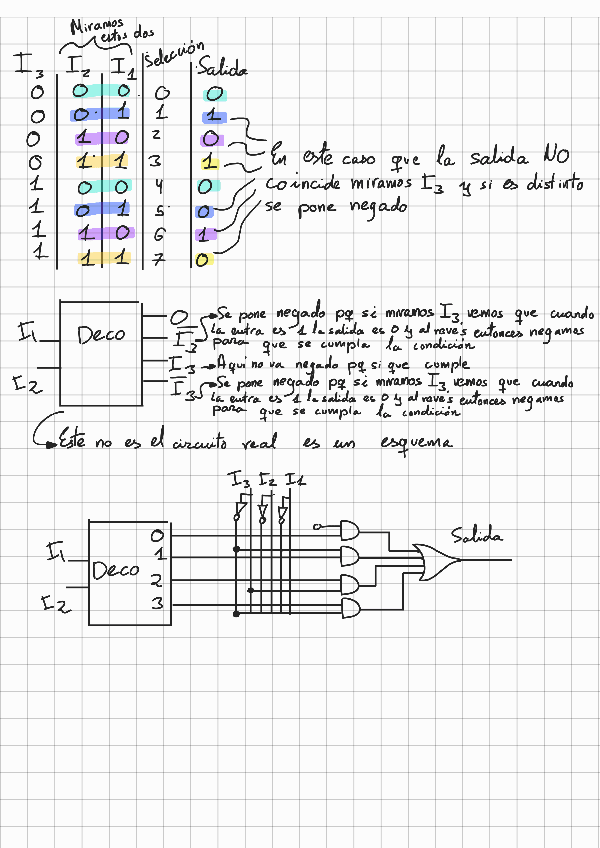 Miramos
estos dos
I3 I2 I1 Selección Salida
0 0 0 0 0
0 0 1 1 1
0 1 0 2 0
0 1 1 3 1
1 0 0 4 0
1 0 1 5 0
1 1 0 6 1
1 1 1 7 0
En este caso que la salida NO
coincide miramos I3 y si es distinto
se pone negado
I1
I2
Deco
0
I3
I3
I3
Se pone negado pq si miramos I3 vemos que cuando
la entra es 1 la salida es 0 y al raves entonces negamos
para que se cumpla la condición
Aqui no va negado pq si que cumple
Se pone negado pq si miramos I3 vemos que cuando
la entra es 1 la salida es 0 y al raves entonces negamos
para que se cumpla la condición
Este no es el circuito real es un esquema
I3 I2 I1
I1
I2
Deco
0
1
2
3
Salida